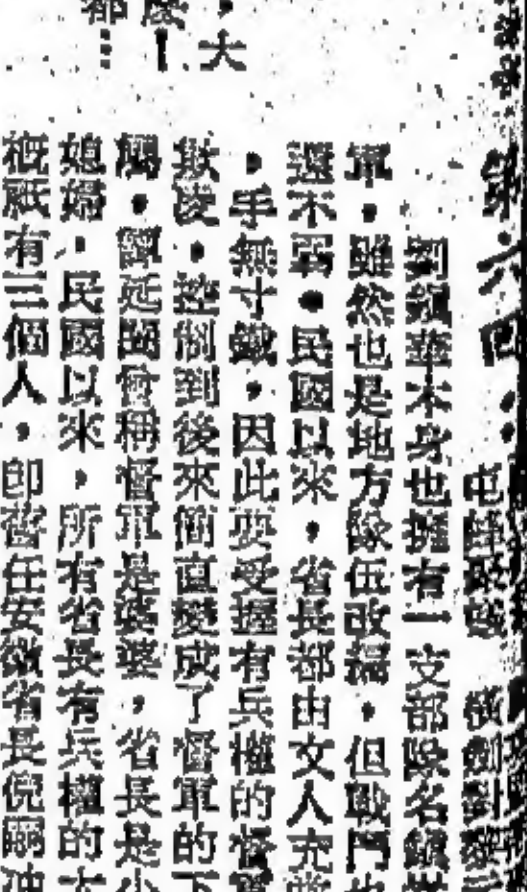 第六回
劉鎮華本身也擁有一支部隊名鎮嵩
軍，雖然也是地方隊伍改編，但戰鬥
還不弱。民國以來，省長都由文人充
，手無寸鐵，因此要受握有兵權的督軍
欺凌，控制到後來簡直變成了督軍的下
屬，譚延闓嘗稱督軍是婆婆，省長是小
媳婦，民國以來，所有省長有兵權的大
概祇有三個人，即曾任安徽省長倪嗣冲
，大
都